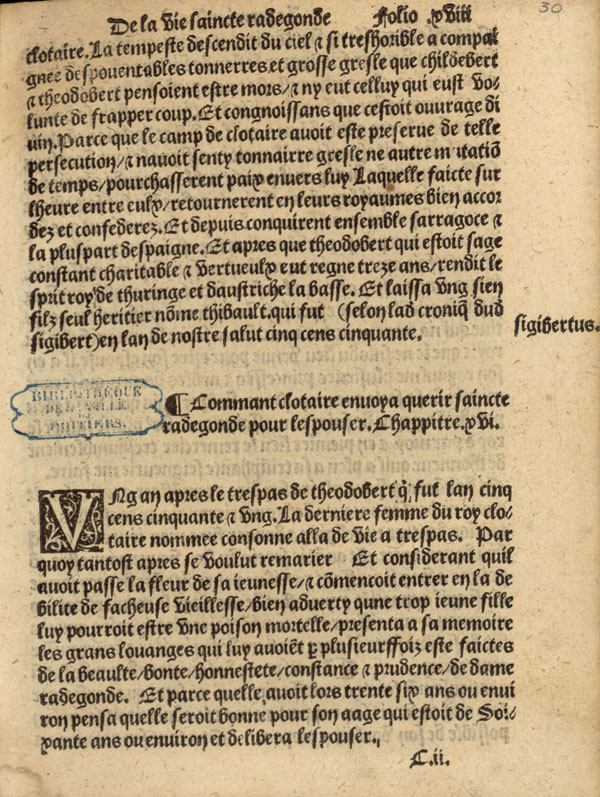 De la vie saincte radegonde Folio .xviii
30
clotaire. La tempeste descendit du ciel & si treshorible a compai
gnee despouentables tonnerres et grosse gresle que childebert
& theodobert pensoient estre mors/& ny eut celluy qui eust vo-
lunte de frapper coup. Et congnoissans que cestoit ouurage di
uin. Parce que le camp de clotaire auoit este preserue de telle
persecution/& nauoit senty tonnairre gresle ne autre mutatiõ
de temps/pourchasserent paix enuers luy Laquelle faicte sur
lheure entre eulx/retournerent en leurs royaumes bien accor
dez et confederez. Et depuis conquirent ensemble sarragoce &
la pluspart despaigne. Et apres que theodobert qui estoit sage
constant charitable & vertueulx eut regne treze ans/rendit le
sprit roy de thuringe et daustriche la basse. Et laissa vng sien
filz seul heritier nõme thibault. qui fut (selon lad croniq dud
sigibert) en lan de nostre salut cinq cens cinquante.
sigibertus.
BIBLIOTHEQUE
DE LA VILLE
DE
POITIERS.
¶ Commant clotaire enuoya querir saincte
radegonde pour lespouser. Chappitre. xvi.
VNg an apres le trespas de theodobert q̃ fut lan cinq
cens cinquante & vng. La derniere femme du roy clo-
taire nommee consonne alla de vie a trespas. Par
quoy tantost apres se voulut remarier Et considerant quil
auoit passe la fleur de sa ieunesse/& cõmencoit entrer en la de
bilite de facheuse vieillesse/bien aduerty qune trop ieune fille
luy pourroit estre vne poison mortelle/presenta a sa memoire
les grans louanges qui luy auoiẽt ꝑ plusieursfoiz este faictes
de la beaulte/bonte/honnestete/constance & prudence/de dame
radegonde. Et parce quelle auoit lors trente six ans ou enui
ron pensa quelle seroit bonne pour son aage qui estoit de Soi-
xante ans ou enuiron et delibera lespouser.
C.ii.